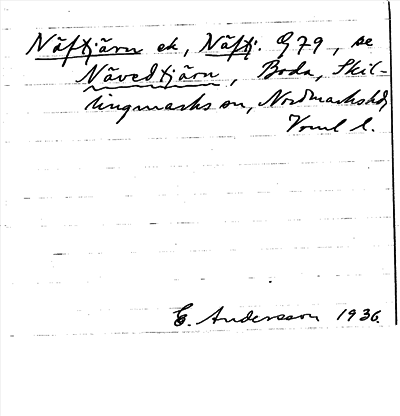 Näftjärn ek, Näftj. G79, se
Nävedtjärn, Boda, Skil-
lingmarks sn, Nordmarks hd,
Vrml l.
E. Andersson 1936.